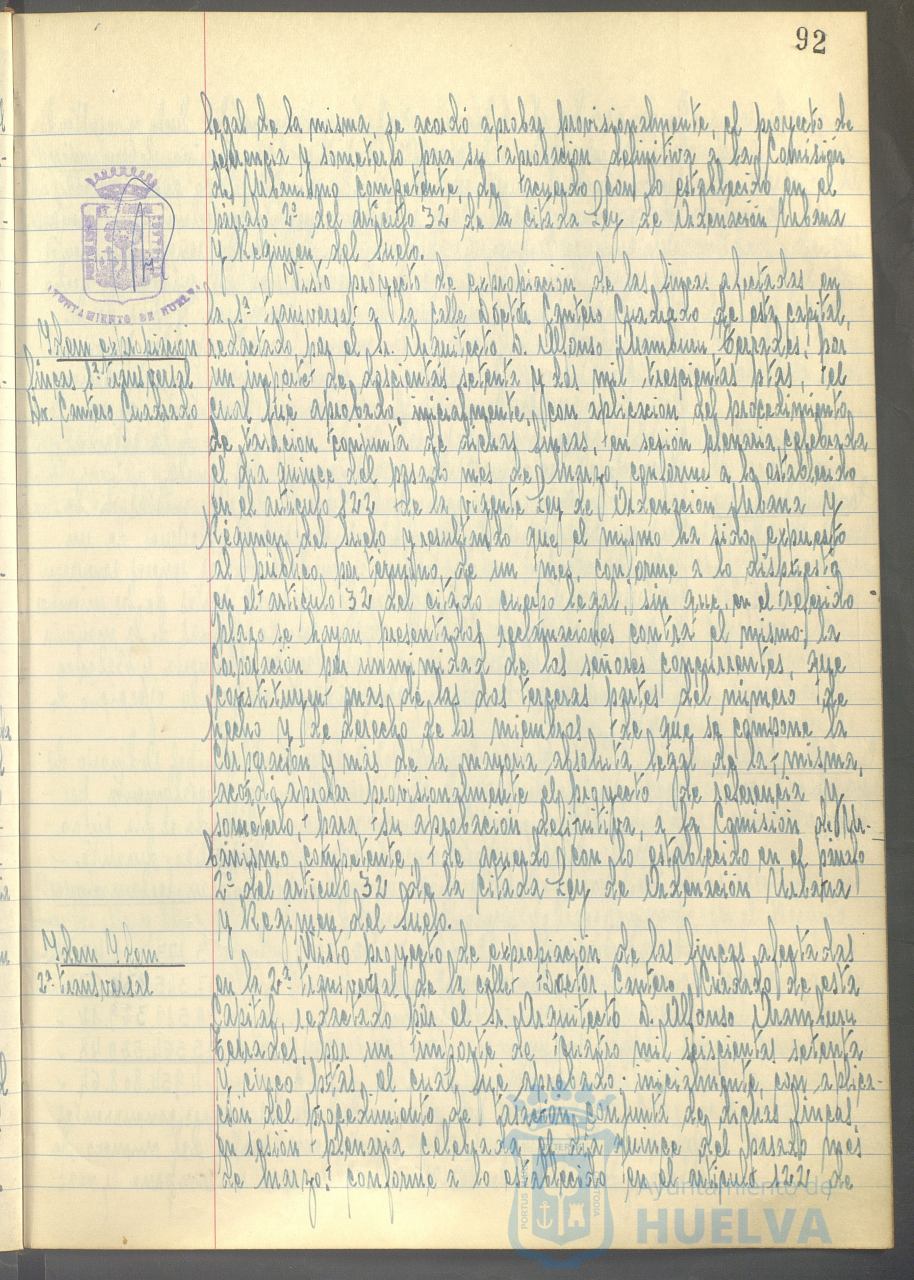 92
legal de la misma, se acordó aprobar provisionalmente, el proyecto de
referencia y someterlo, para su aprobacion definitiva a la Comisión
de Urbanismo competente, de acuerdo con lo establecido en el
párrafo 2º del artículo 32 de la citada Ley de Ordenación Urbana
y Regimen del Suelo.
AYUNTAMIENTO DE HUELVA
Idem expropiación
fincas 1ª transversal
Dr. Cantero Cuadrado
Visto proyecto de expropiacion de las fincas afectadas en
la 1ª transversal a la calle Doctor Cantero Cuadrado de esta capital,
redactado por el Sr. Arquitecto D. Alfonso Aramburu Terrades, por
un importe de doscientas setenta y dos mil trescientas ptas, el
cual fué aprobado, inicialmente, con aplicacion del procedimiento
de tasacion conjunta de dichas fincas, en sesión plenaria, celebrada
el dia quince del pasado mes de Marzo, conforme a lo establecido
en el artículo 122 de la vigente Ley de Ordenación Urbana y
Régimen del Suelo y resultando que el mismo ha sido expuesto
al público, por termino de un mes, conforme a lo dispuesto
en el artículo 32 del citado cuerpo legal, sin que en el referido
plazo se hayan presentados reclamaciones contra el mismo, la
Corporación por unanimidad de los señores concurrentes, que
constituyen mas de las dos terceras partes del número de
hecho y de derecho de los miembros de que se compone la
Corporación y más de la mayoria absoluta legal de la misma,
acordó aprobar provisionalmente el proyecto de referencia y
someterlo para su aprobación definitiva, a la Comisión de Ur-
banismo competente, de acuerdo con lo establecido en el párrafo
2º del artículo 32 de la citada Ley de Ordenación Urbana
y Regimen del Suelo.
Idem Idem
2ª transversal
Visto proyecto de expropiación de las fincas afectadas
en la 2ª transversal de la calle Doctor Cantero Cuadrado de esta
Capital, redactado por el Sr. Arquitecto D. Alfonso Aramburu
Terrades, por un importe de cuatro mil seiscientas setenta
y cinco ptas, el cual fué aprobado inicialmente, con aplica-
ción del procedimiento de tasación conjunta de dichas fincas
en sesión plenaria celebrada el dia quince del pasado mes
de marzo, conforme a lo establecido en el artículo 122 de
PORTUS
CUSTODIA
Ayuntamiento de
HUELVA